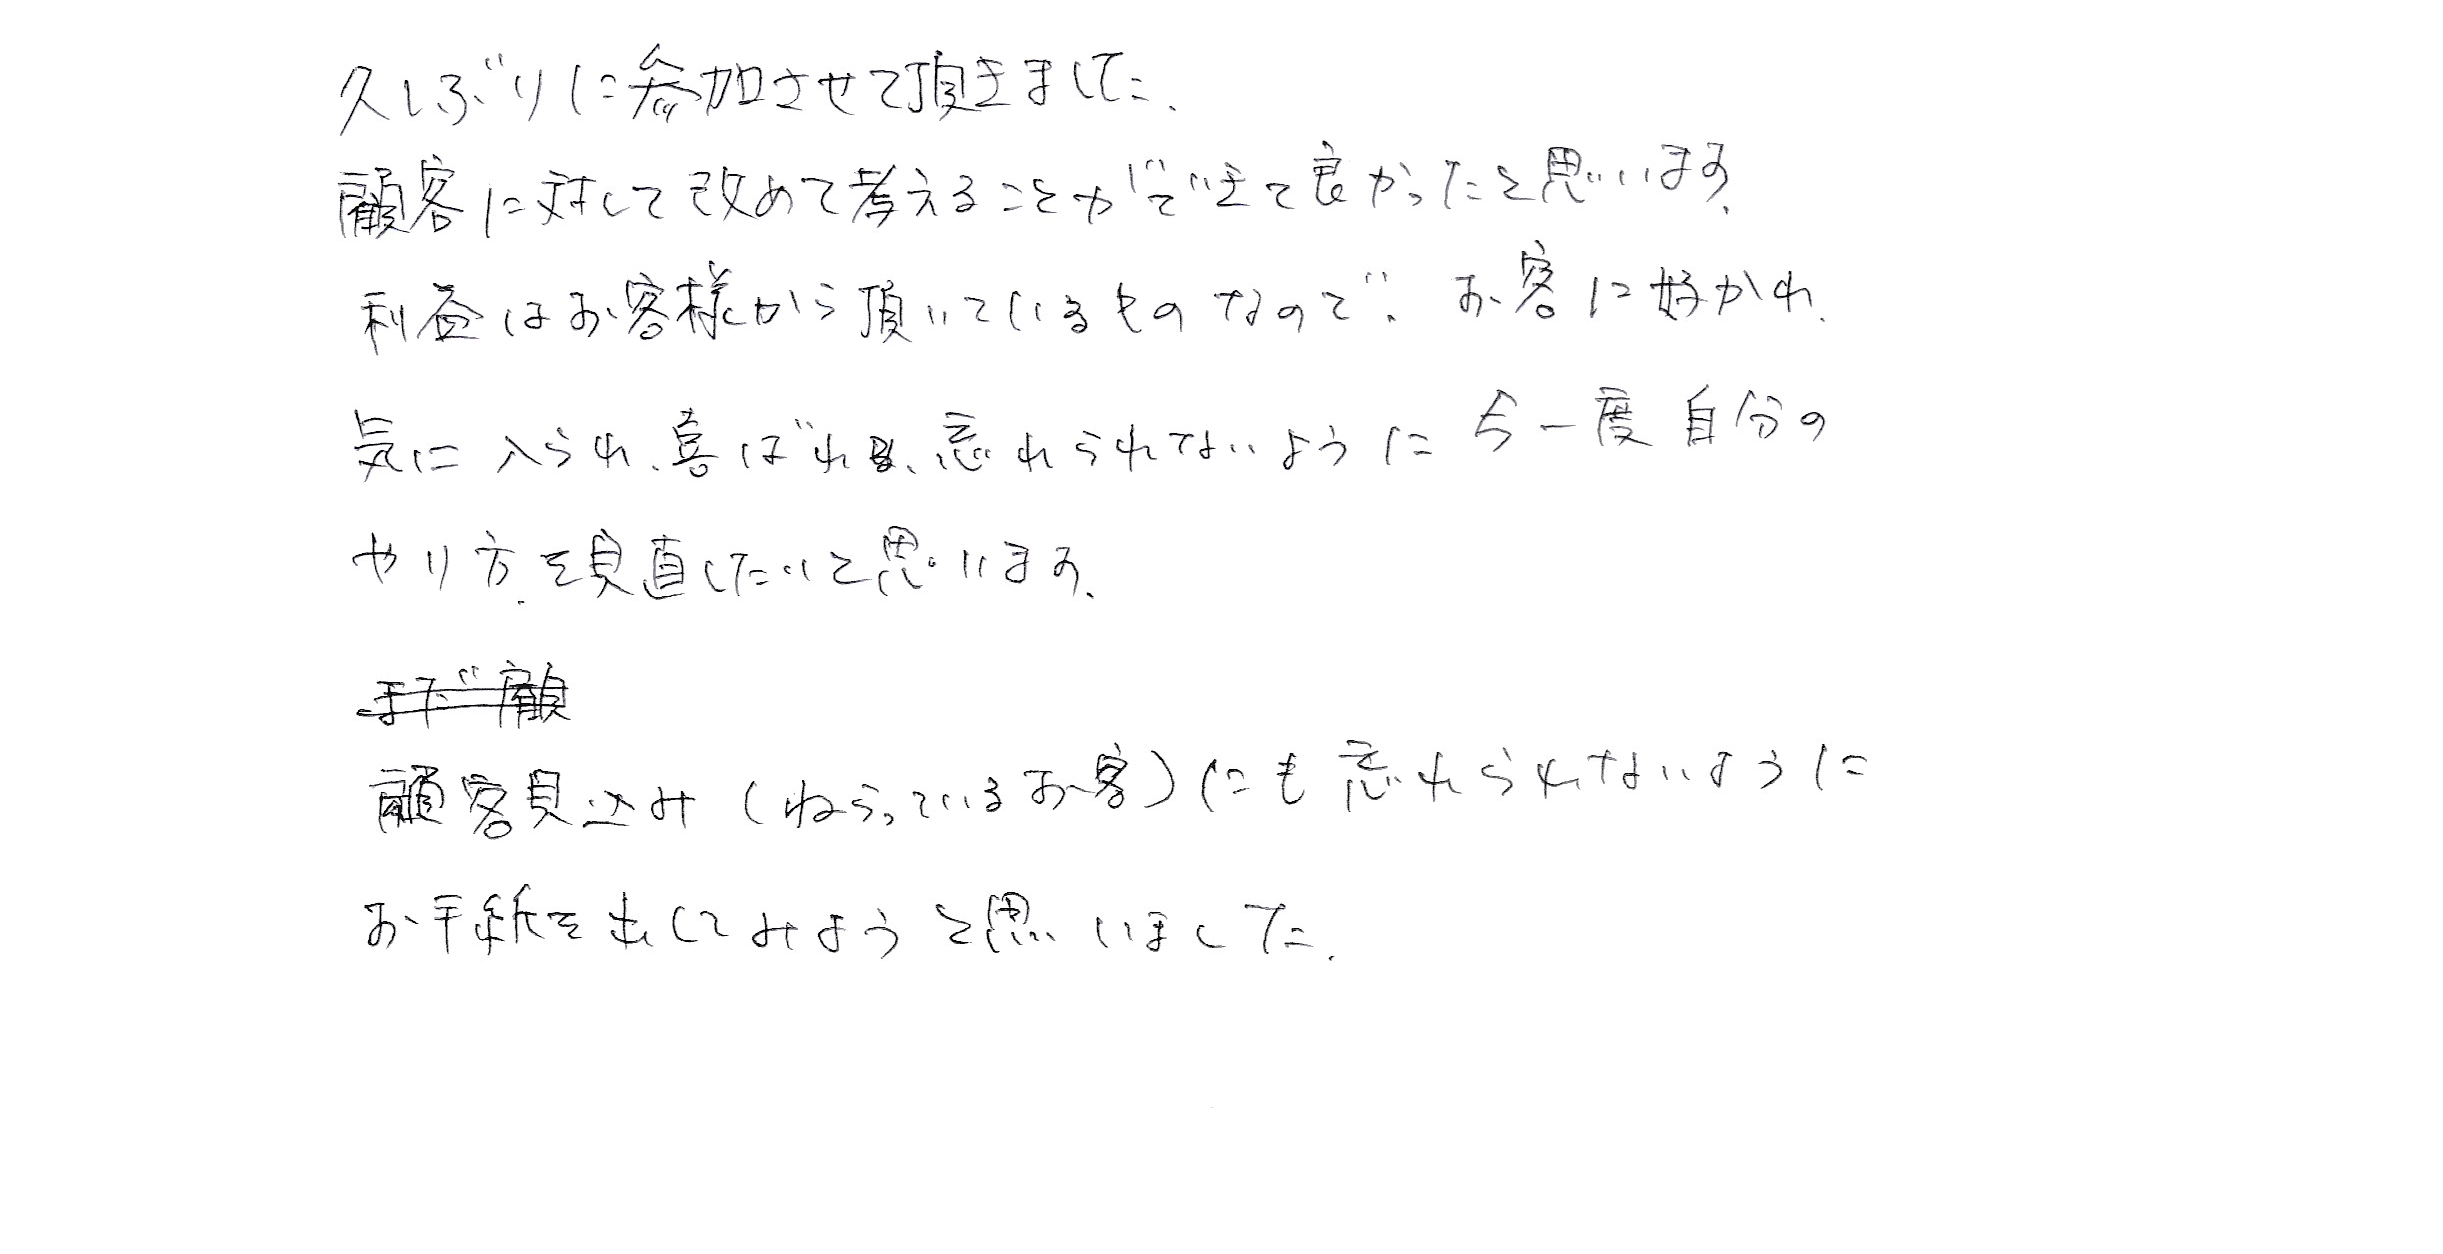 久しぶりに参加させて頂きました.
顧客に対して改めて考えることができて良かったと思います.
利益はお客様から頂いているものなので、お客に好かれ、
気に入られ、喜ばれ、忘れられないように今一度自分の
やり方を見直したいと思います.
まだ顧
顧客見込み(ねらっているお客)にも忘れられないように
お手紙を出してみようと思いました.